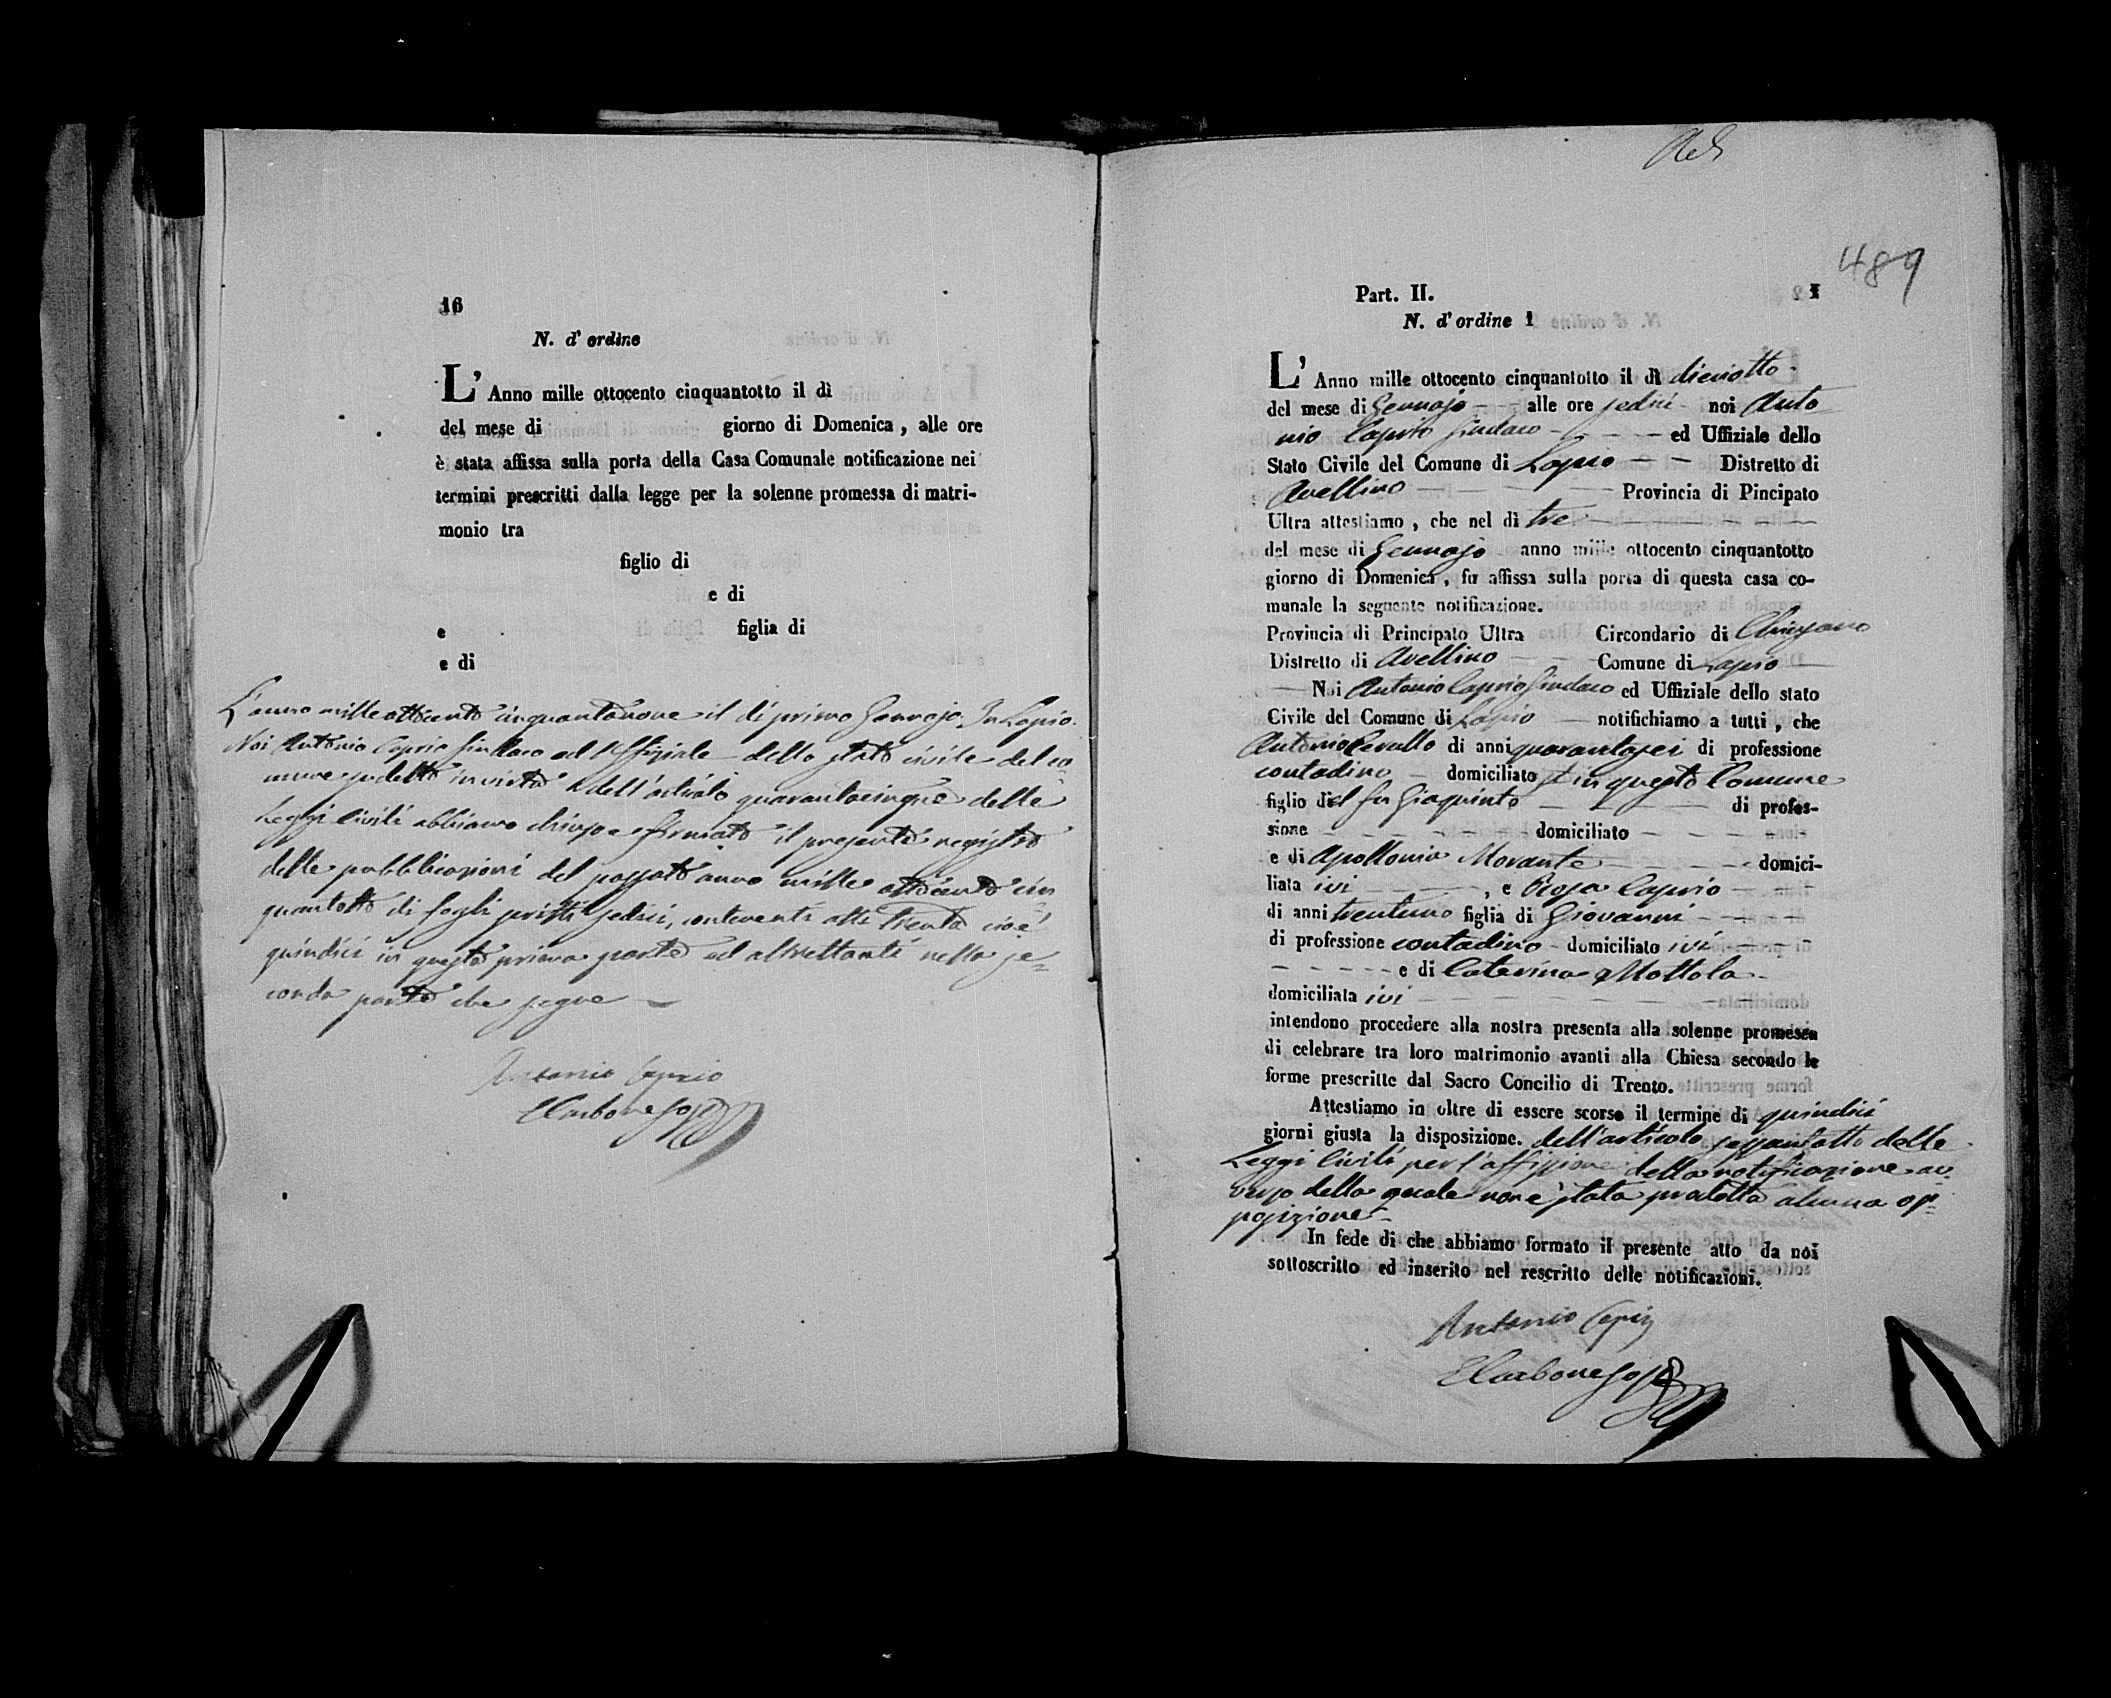 16
N. d' ordine
L' Anno mille ottocento cinquantotto il dì
del mese di giorno di Domenica, alle ore
è stata affissa sulla porta della Casa Comunale notificazione nei
termini prescritti dalla legge per la solenne promessa di matri-
monio tra
figlio di
e di
e figlia di
e di
L'anno mille ottocento cinquantanove il dì primo Gennajo. In Lapio.
Noi Antonio Caprio Sindaco ed Uffiziale dello stato civile del co=
mune sudetto in virtù dell'articolo quarantacinque delle
Leggi Civili abbiamo chiuso e firmato il presente registro
delle pubblicazioni del passato anno mille ottocento cin
quantotto di fogli scritti sedici, contenenti atti trenta cioè
quindici in questa prima parte ed altrettanti nella se=
conda parte che segue
Antonio Caprio
Carbone
489
Part. II. 1
N. d' ordine 1
L' Anno mille ottocento cinquantotto il dì dieciotto
del mese di Gennajo alle ore sedici noi Anto
nio Caprio Sindaco ed Uffiziale dello
Stato Civile del Comune di Lapio Distretto di
Avellino Provincia di Pincipato
Ultra attestiamo, che nel dì tre
del mese di Gennajo anno mille ottocento cinquantotto
giorno di Domenica, fu affissa sulla porta di questa casa co-
munale la seguente notificazione.
Provincia di Principato Ultra Circondario di Chiusano
Distretto di Avellino Comune di Lapio
Noi Antonio Caprio Sindaco ed Uffiziale dello stato
Civile del Comune di Lapio notifichiamo a tutti, che
Antonio di anni quarantasei di professione
contadino domiciliato in questo Comune
figlio del fu Giaquinto di profes-
sione domiciliato
e di Apollonia Morante domici-
liata ivi, e Rosa Caprio
di anni trentuno figlia di Giovanni
di professione contadino domiciliato ivi
e di Caterina Mottola
domiciliata ivi
intendono procedere alla nostra presenta alla solenne promessa
di celebrare tra loro matrimonio avanti alla Chiesa secondo le
forme prescritte dal Sacro Concilio di Trento.
Attestiamo in oltre di essere scorso il termine di quindici
giorni giusta la disposizione. dell'articolo sessantotto delle
Leggi Civili per l'affissione della notificazione av=
verso della quale non è stata prodotta alcuna op=
posizione
In fede di che abbiamo formato il presente atto da noi
sottoscritto ed inserito nel rescritto delle notificazioni.
Antonio Caprio
Carbone